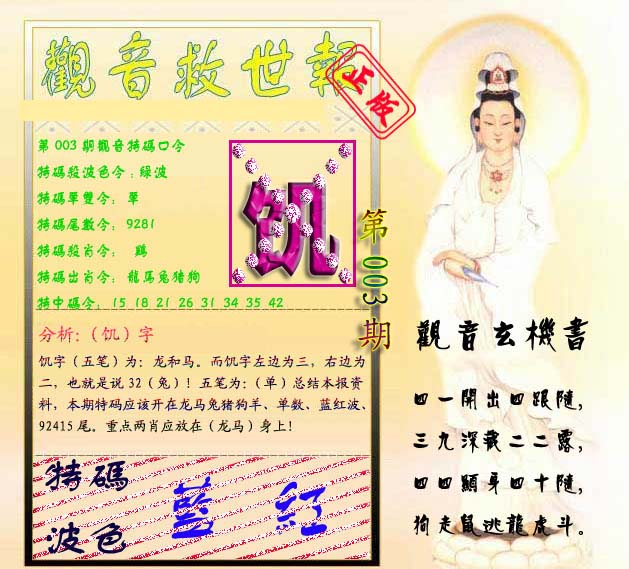 觀音救世報
正版
第003期觀音特碼口令
特碼殺波色令：綠波
特碼單雙令： 單
特碼尾數令： 9281
特碼殺肖令： 鷄
特碼出肖令： 龍馬兔猪狗
特中碼令： 15 18 21 26 31 34 35 42
饥
第003期
分析:（饥）字
饥字（五笔）为：龙和马。而饥字左边为三，右边为
二，也就是说 32（兔）！五笔为：（单）总结本报资
料，本期特码应该开在龙马兔猪狗羊、单数、蓝红波、
92415 尾。重点两肖应放在（龙马）身上！
特碼
波色
藍 紅
觀音玄機書
四一開出四跟隨，
三九深藏二二露，
四四顯身四十隨，
狗走鼠逃龍虎斗。